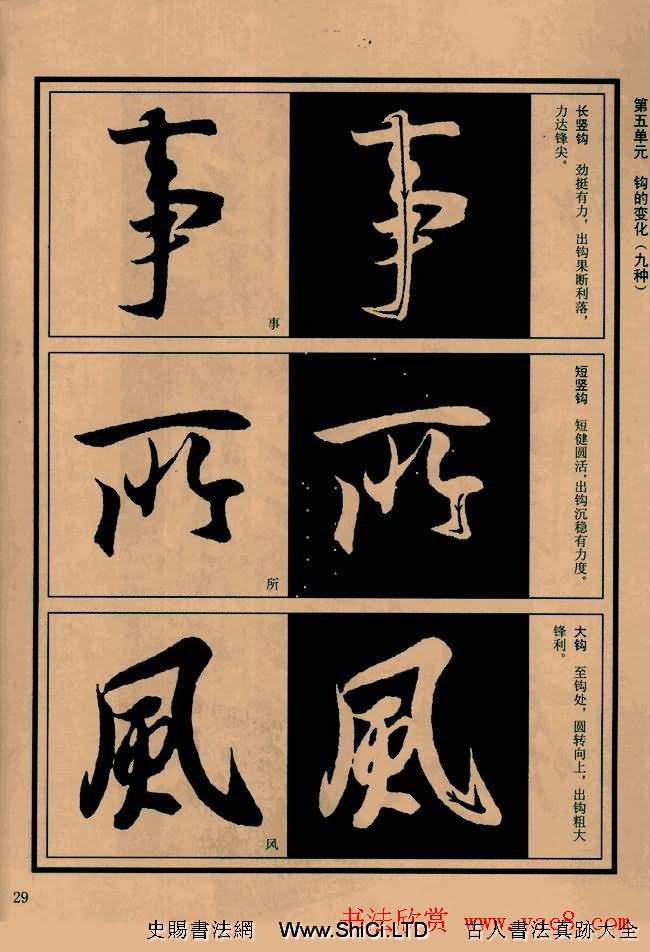 第五单元 钩的变化（九种）
长竖钩 劲挺有力，出钩果断利落，
力达锋尖。
事
事
事
短竖钩 短健圆活，出钩沉稳有力度。
所
所
所
大钩 至钩处，圆转向上，出钩粗大
锋利。
風
風
风
29
书法欣赏 www.yac8.com
史賜書法網 Www.ShiCi.LTD 古人書法真跡大全